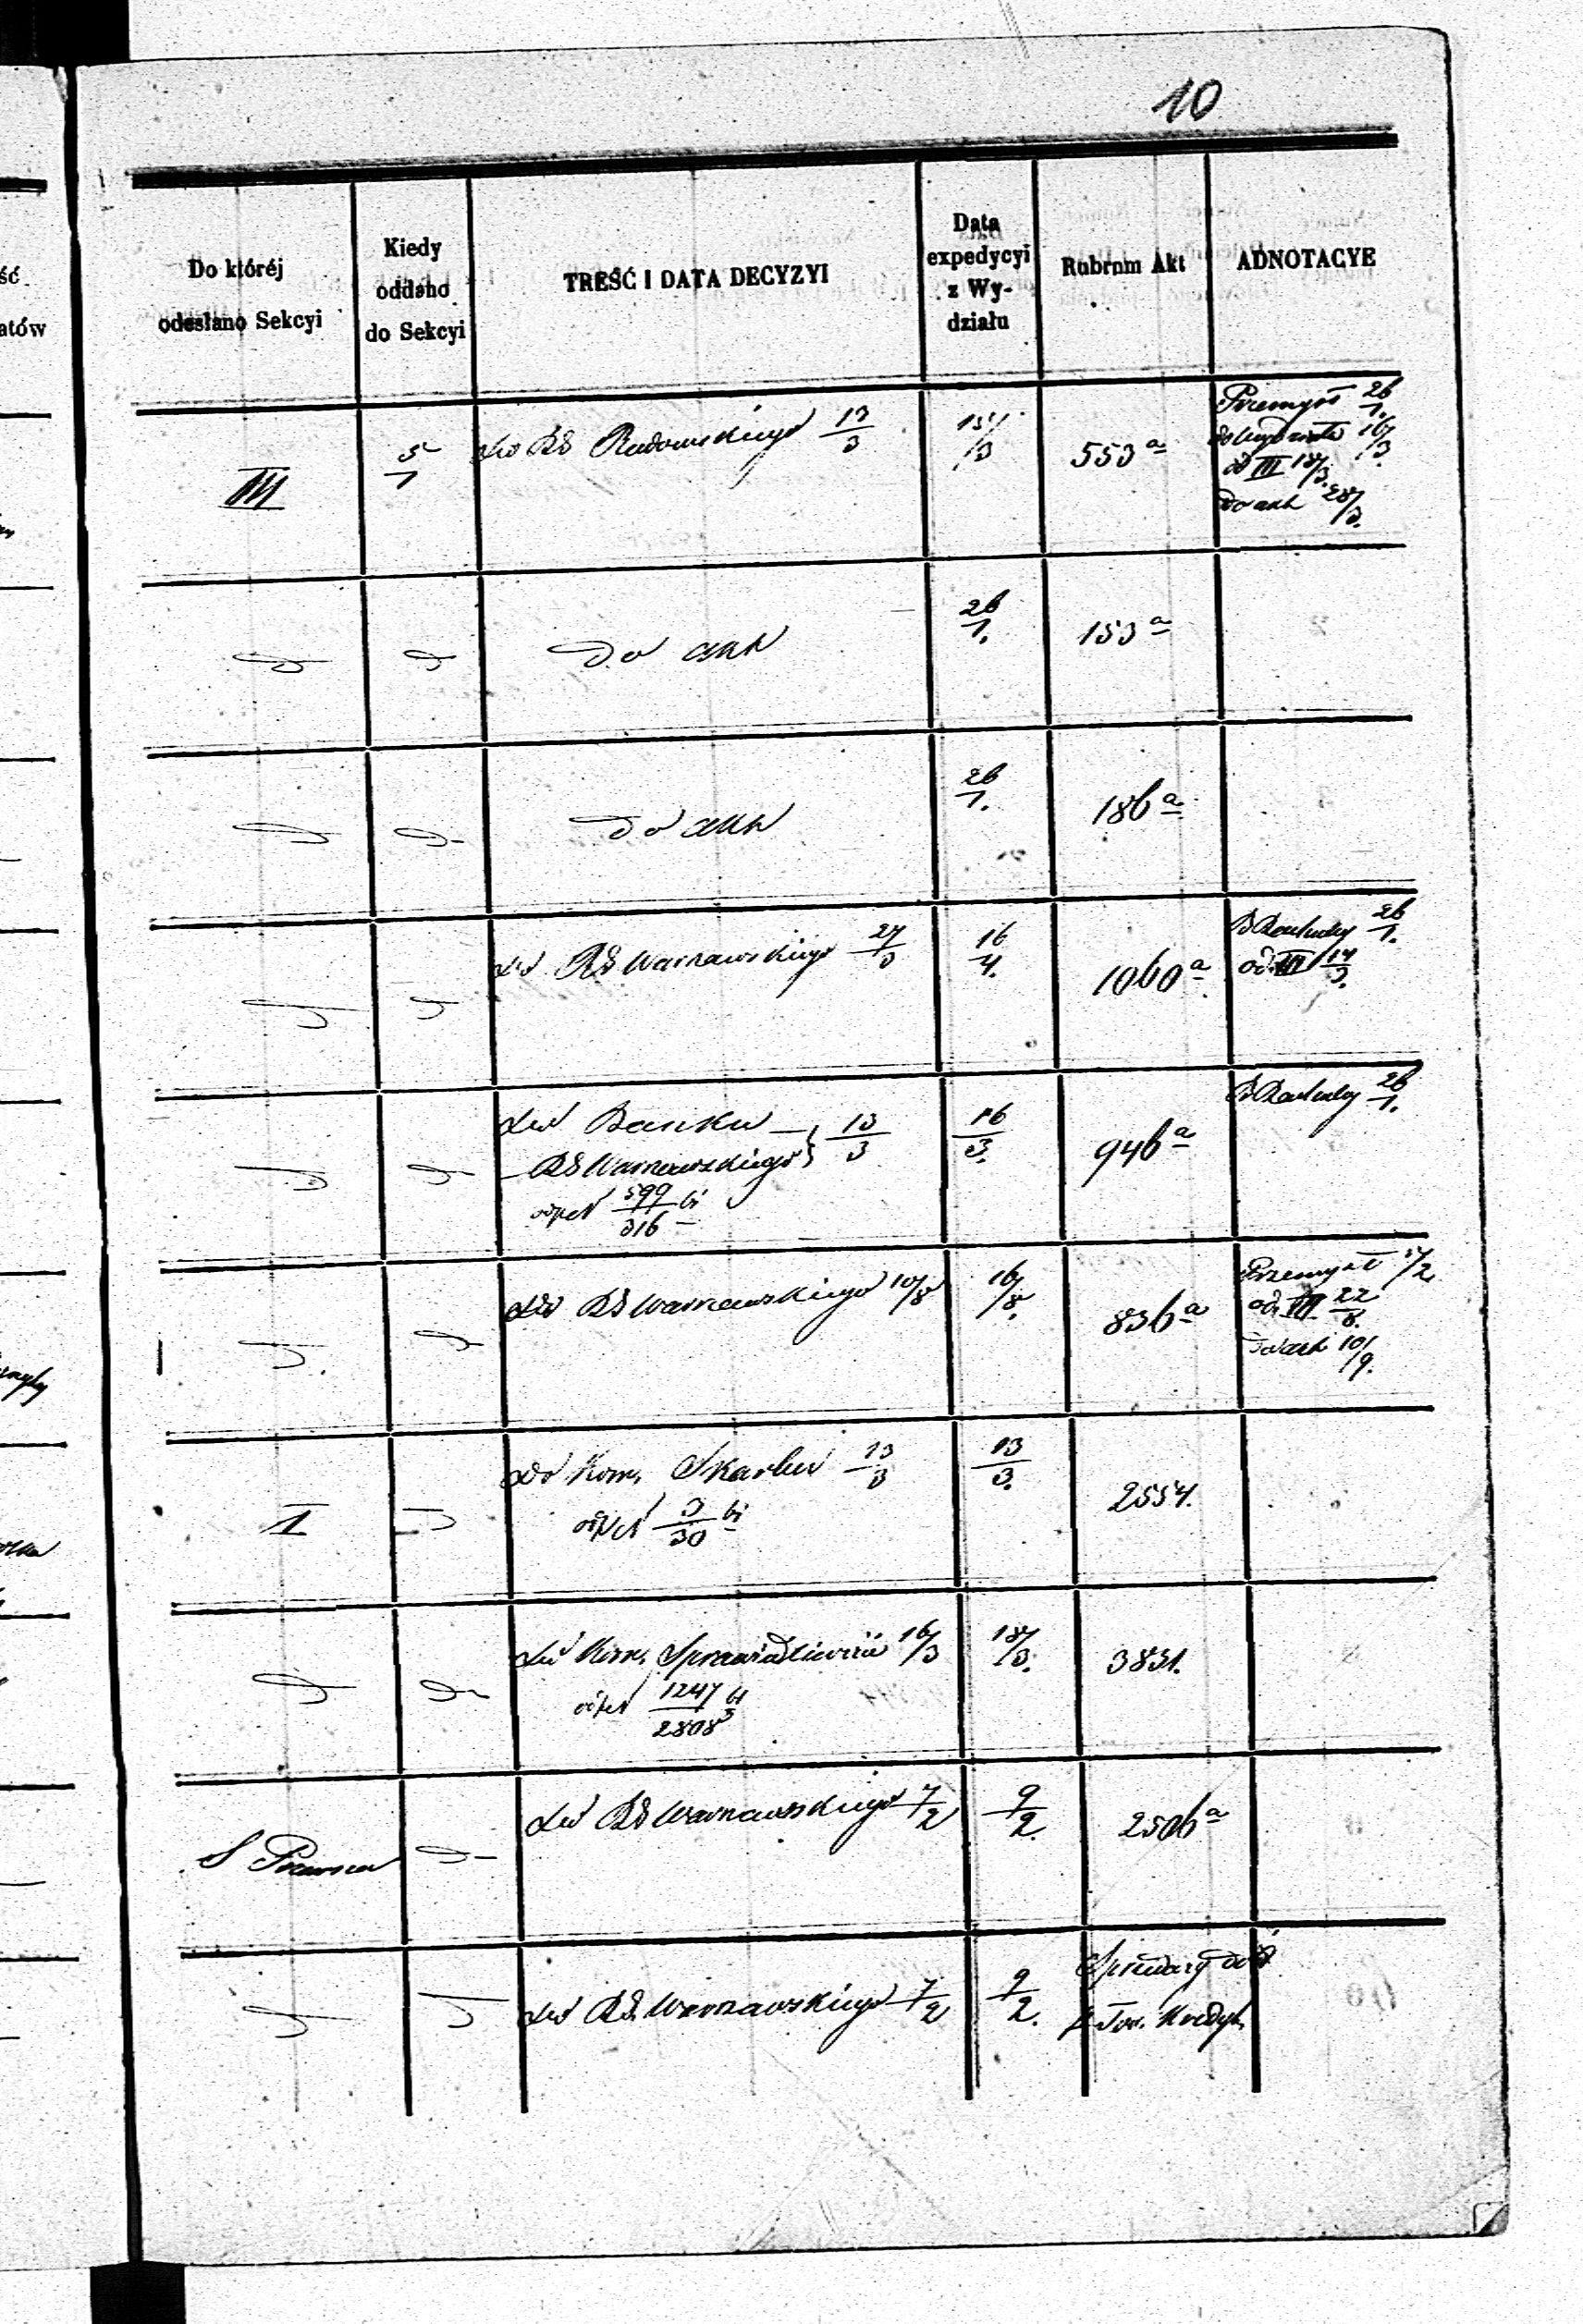 10
Do któréj
odesłano Sekcyi
Kiedy
oddano
do Sekcyi
TREŚĆ I DATA DECYZYI
Data
expedycyi
z Wy-
działu
Rubrum Akt
ADNOTACYE
III
5/1
do RG Radomskiego 13/3
15/3
553 a
Przemysł 26/1.
16/3.
od III 18/3.
Do akt 28/3.
Do akt
26/1.
153 a
Do akt
26/1.
186 a
do RG Warszawskiego 27/3
16/4.
1060 a
26/1.
od III 14/3.
do Banku
RG Warszawskiego } 13/3
599/316
16/3.
946 a
26/1.
do RG Warszawskiego 10/8
16/8.
836 a
Przemysł 5/2
od III 22/8.
Do akt 10/9.
I
do Kom. Skarbu 13/3
3/30
13/3.
2554.
do Kom. Sprawiedliwości 16/3
1247/2808
18/3.
3831.
S Prawna
do RG Warszawskiego 7/2
9/2.
2506 a
do RG. Warszawskiego 7/2
9/2.
Sprzedaży dóbr
p. Tow. Kredyt.
ść
atów